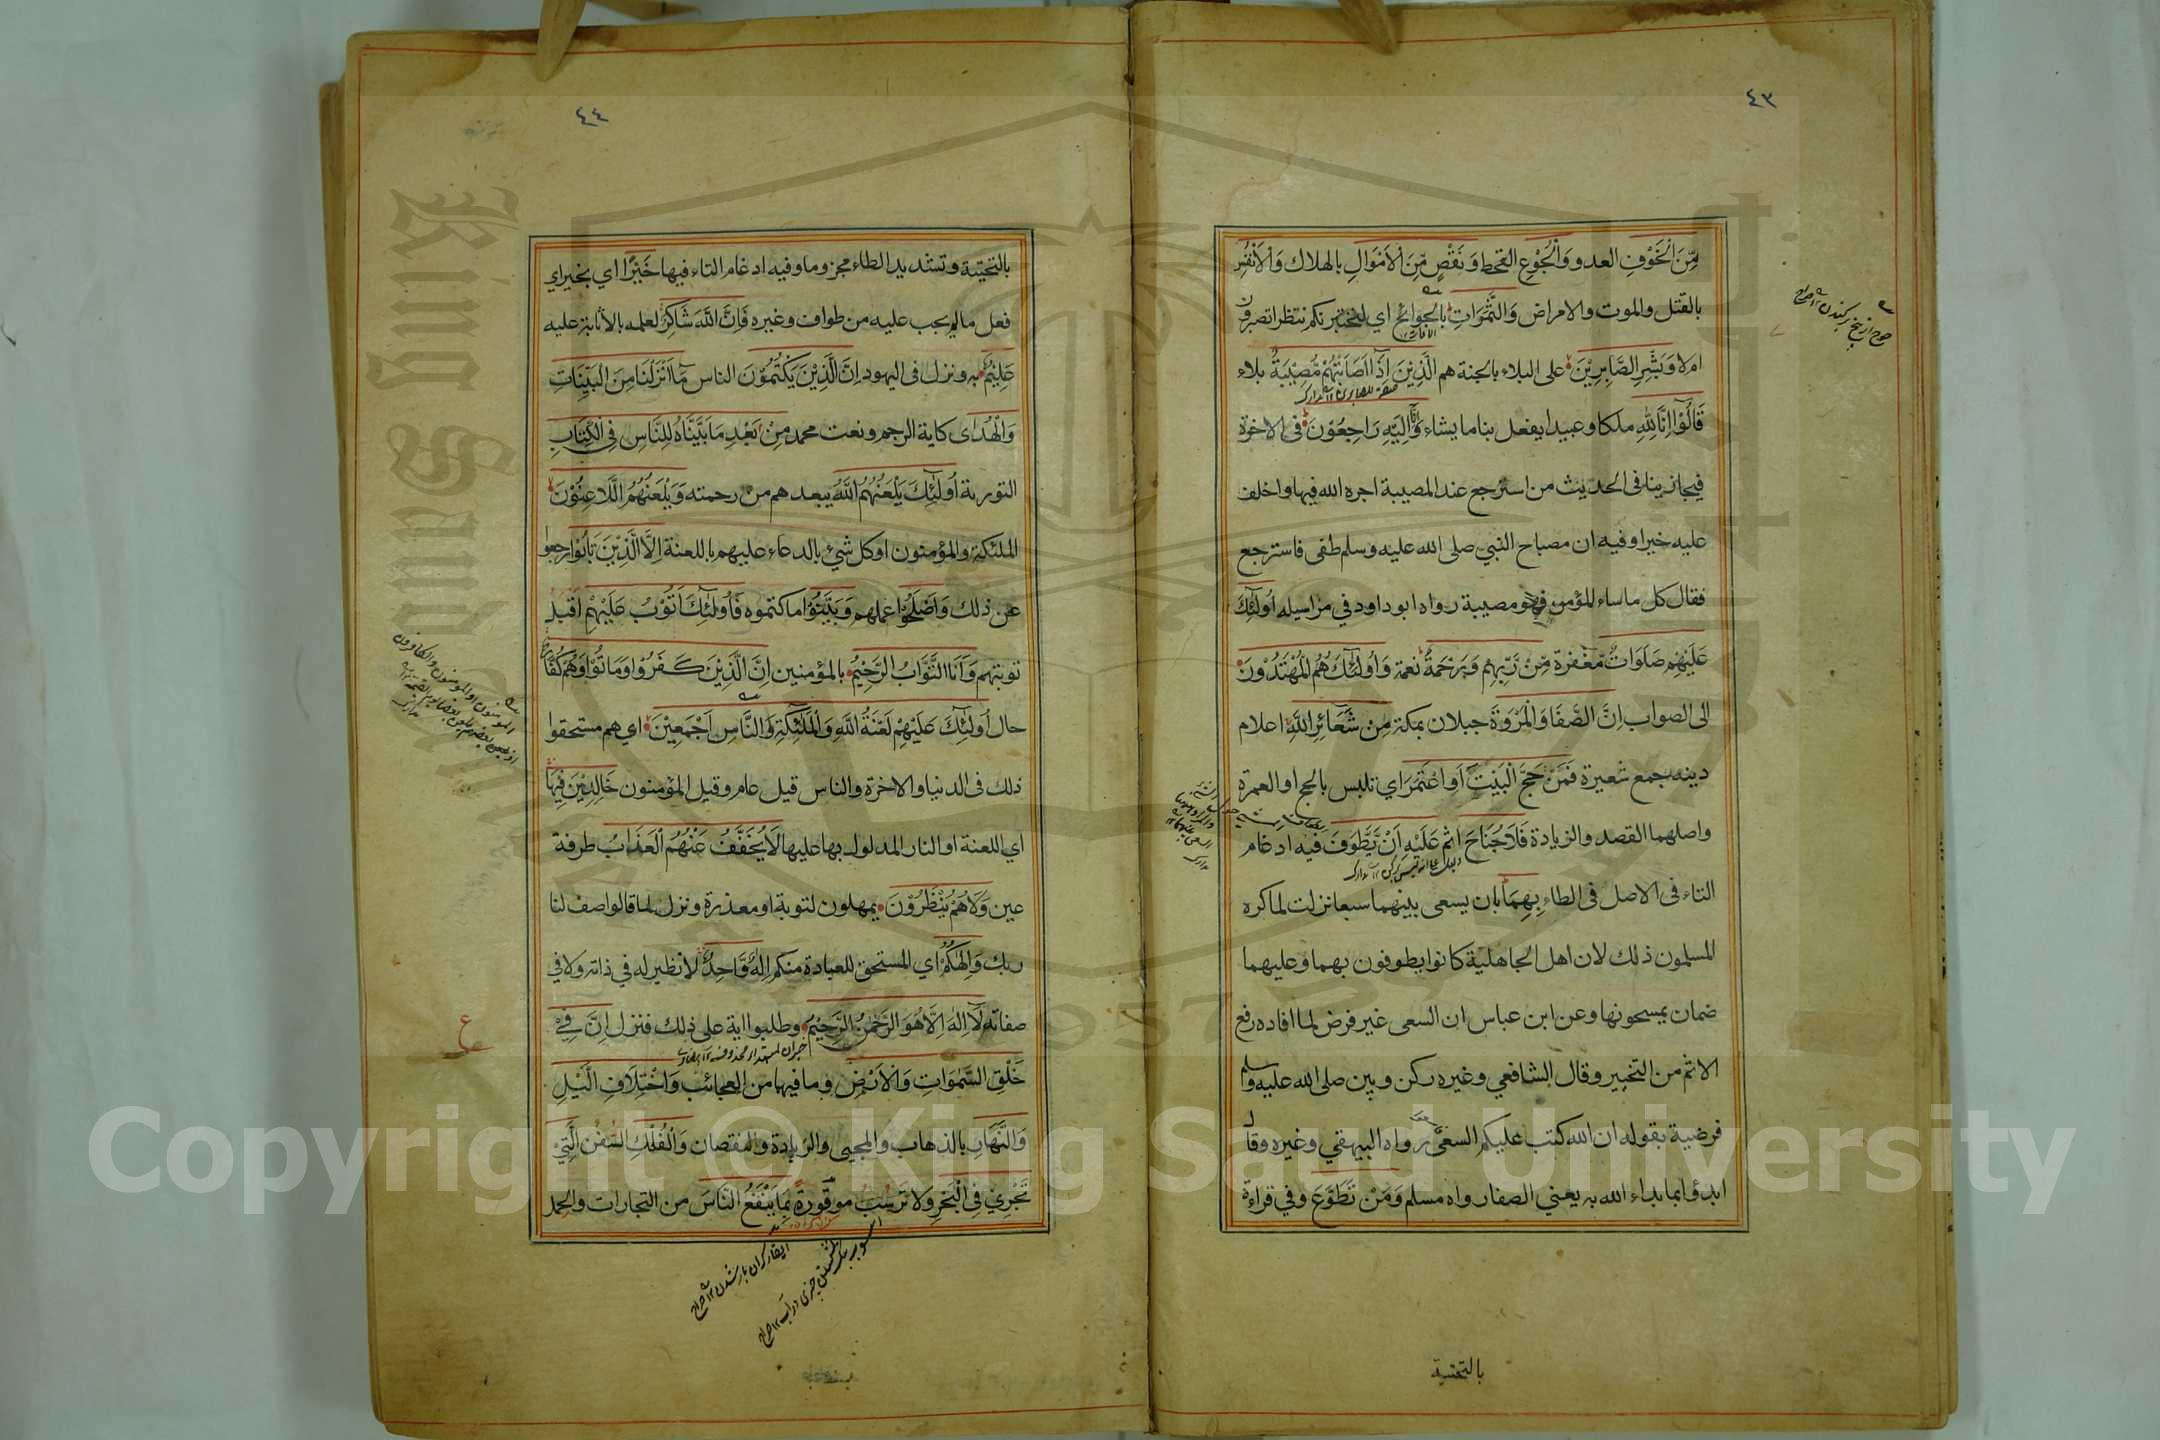 ٤٣
مِّنَ الْخَوْفِ العدو وَالْجُوْعِ القحط وَنَقْصٍ مِّنَ الْاَمْوَالِ بالهلاك وَالْاَنْفُسِ
بالقتل والموت والامراض وَالثَّمَرَاتِ بالجوائح اي لنختبرنكم فننظر اتصبرون
ام لا وَبَشِّرِ الصَّابِرِيْنَ على البلاء بالجنة هم الَّذِيْنَ اِذَا اَصَابَتْهُمْ مُّصِيْبَةٌ بلاء
قَالُوْا اِنَّا لِلّٰهِ ملكا وعبيدا يفعل بنا ما يشاء وَاِنَّا اِلَيْهِ رَاجِعُوْنَ في الاخرة
فيجازينا في الحديث من استرجع عند المصيبة اجره الله فيها واخلف
عليه خيرا وفيه ان مصباح النبي صلى الله عليه وسلم طفى فاسترجع
فقال كل ما ساء المؤمن فهو مصيبة رواه ابو داود في مراسيله اُولٰٓئِكَ
عَلَيْهِمْ صَلَوَاتٌ مغفرة مِّنْ رَّبِّهِمْ وَرَحْمَةٌ نعمة وَاُولٰٓئِكَ هُمُ الْمُهْتَدُوْنَ
الى الصواب اِنَّ الصَّفَا وَالْمَرْوَةَ جبلان بمكة مِنْ شَعَآئِرِ اللّٰهِ اعلام
دينه جمع شعيرة فَمَنْ حَجَّ الْبَيْتَ اَوِ اعْتَمَرَ اي تلبس بالحج او العمرة
واصلهما القصد والزيادة فَلَا جُنَاحَ اثم عَلَيْهِ اَنْ يَّطَّوَّفَ فيه ادغام
التاء في الاصل في الطاء بِهِمَا بان يسعى بينهما سبعا نزلت لما كره
المسلمون ذلك لان اهل الجاهلية كانوا يطوفون بهما وعليهما
ضمان يمسحونها وعن ابن عباس ان السعي غير فرض لما افاده رفع
الاثم من التخيير وقال الشافعي وغيره ركن وبين صلى الله عليه وسلم
فرضية بقوله ان الله كتب عليكم السعي رواه البيهقي وغيره وقال
ابدؤا بما بداء الله به يعني الصفا رواه مسلم وَمَنْ تَطَوَّعَ وفي قراءة
بالتحتية
٤٤
بالتحتية وتشديد الطاء مجزوما وفيه ادغام التاء فيها خَيْرًا اي بخير اي
فعل ما لم يجب عليه من طواف وغيره فَاِنَّ اللّٰهَ شَاكِرٌ لعمله بالاثابة عليه
عَلِيْمٌ به ونزل في اليهود اِنَّ الَّذِيْنَ يَكْتُمُوْنَ الناس مَآ اَنْزَلْنَا مِنَ الْبَيِّنَاتِ
وَالْهُدٰى كاية الرجم ونعت محمد مِنْ بَعْدِ مَا بَيَّنَّاهُ لِلنَّاسِ فِي الْكِتَابِ
التورىة اُولٰٓئِكَ يَلْعَنُهُمُ اللّٰهُ يبعدهم من رحمته وَيَلْعَنُهُمُ اللَّاعِنُوْنَ
الملئكة والمؤمنون او كل شيء بالدعاء عليهم باللعنة اِلَّا الَّذِيْنَ تَابُوْا رجعوا
عن ذلك وَاَصْلَحُوْا عملهم وَبَيَّنُوْا ما كتموه فَاُولٰٓئِكَ اَتُوْبُ عَلَيْهِمْ اقبل
توبتهم وَاَنَا التَّوَّابُ الرَّحِيْمُ بالمؤمنين اِنَّ الَّذِيْنَ كَفَرُوْا وَمَاتُوْا وَهُمْ كُفَّارٌ
حال اُولٰٓئِكَ عَلَيْهِمْ لَعْنَةُ اللّٰهِ وَالْمَلٰٓئِكَةِ وَالنَّاسِ اَجْمَعِيْنَ اي هم مستحقوا
ذلك في الدنيا والاخرة والناس قيل عام وقيل المؤمنون خَالِدِيْنَ فِيْهَا
اي اللعنة او النار المدلول بها عليها لَا يُخَفَّفُ عَنْهُمُ الْعَذَابُ طرفة
عين وَلَا هُمْ يُنْظَرُوْنَ يمهلون لتوبة او معذرة ونزل لما قالوا صف لنا
ربك وَاِلٰهُكُمْ اي المستحق للعبادة منكم اِلٰهٌ وَّاحِدٌ لا نظير له في ذاته ولا في
صفاته لَآ اِلٰهَ اِلَّا هُوَ الرَّحْمٰنُ الرَّحِيْمُ وطلبوا اية على ذلك فنزل اِنَّ فِيْ
خَلْقِ السَّمٰوَاتِ وَالْاَرْضِ وما فيهما من العجائب وَاخْتِلَافِ الَّيْلِ
وَالنَّهَارِ بالذهاب والمجيى والزيادة والنقصان وَالْفُلْكِ السفن الَّتِيْ
تَجْرِيْ فِي الْبَحْرِ ولا ترسب موقورة بِمَا يَنْفَعُ النَّاسَ من التجارات والحمل
ع
Copyright © King Saud University